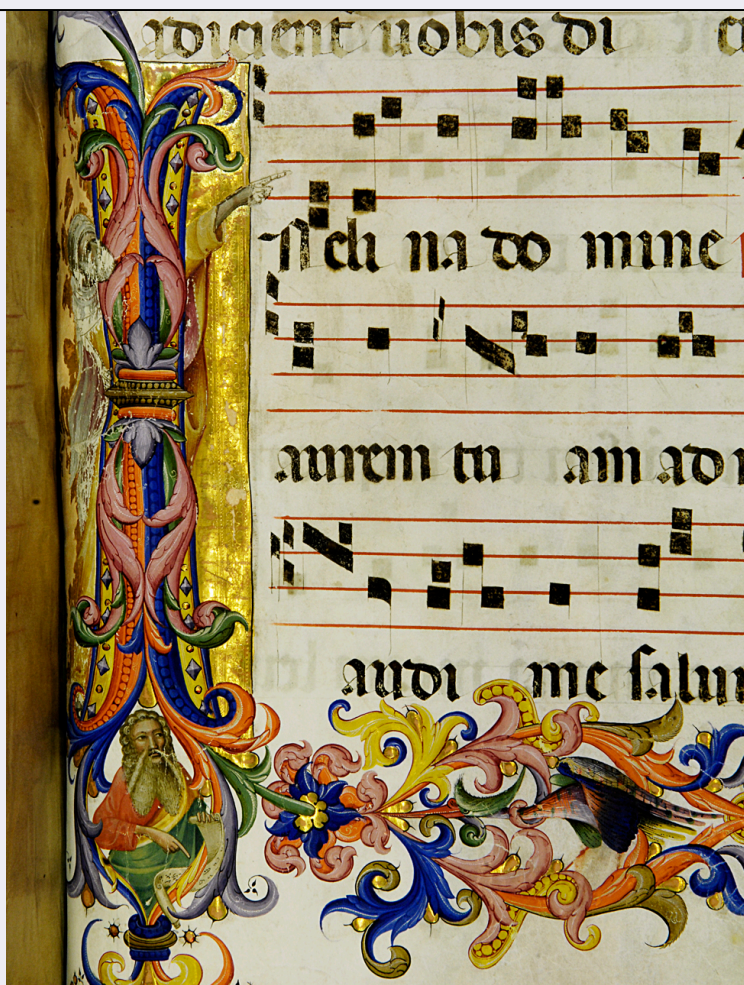 adicient uobis di
Ncli na do mine
aurem tu am ad
audi me salu